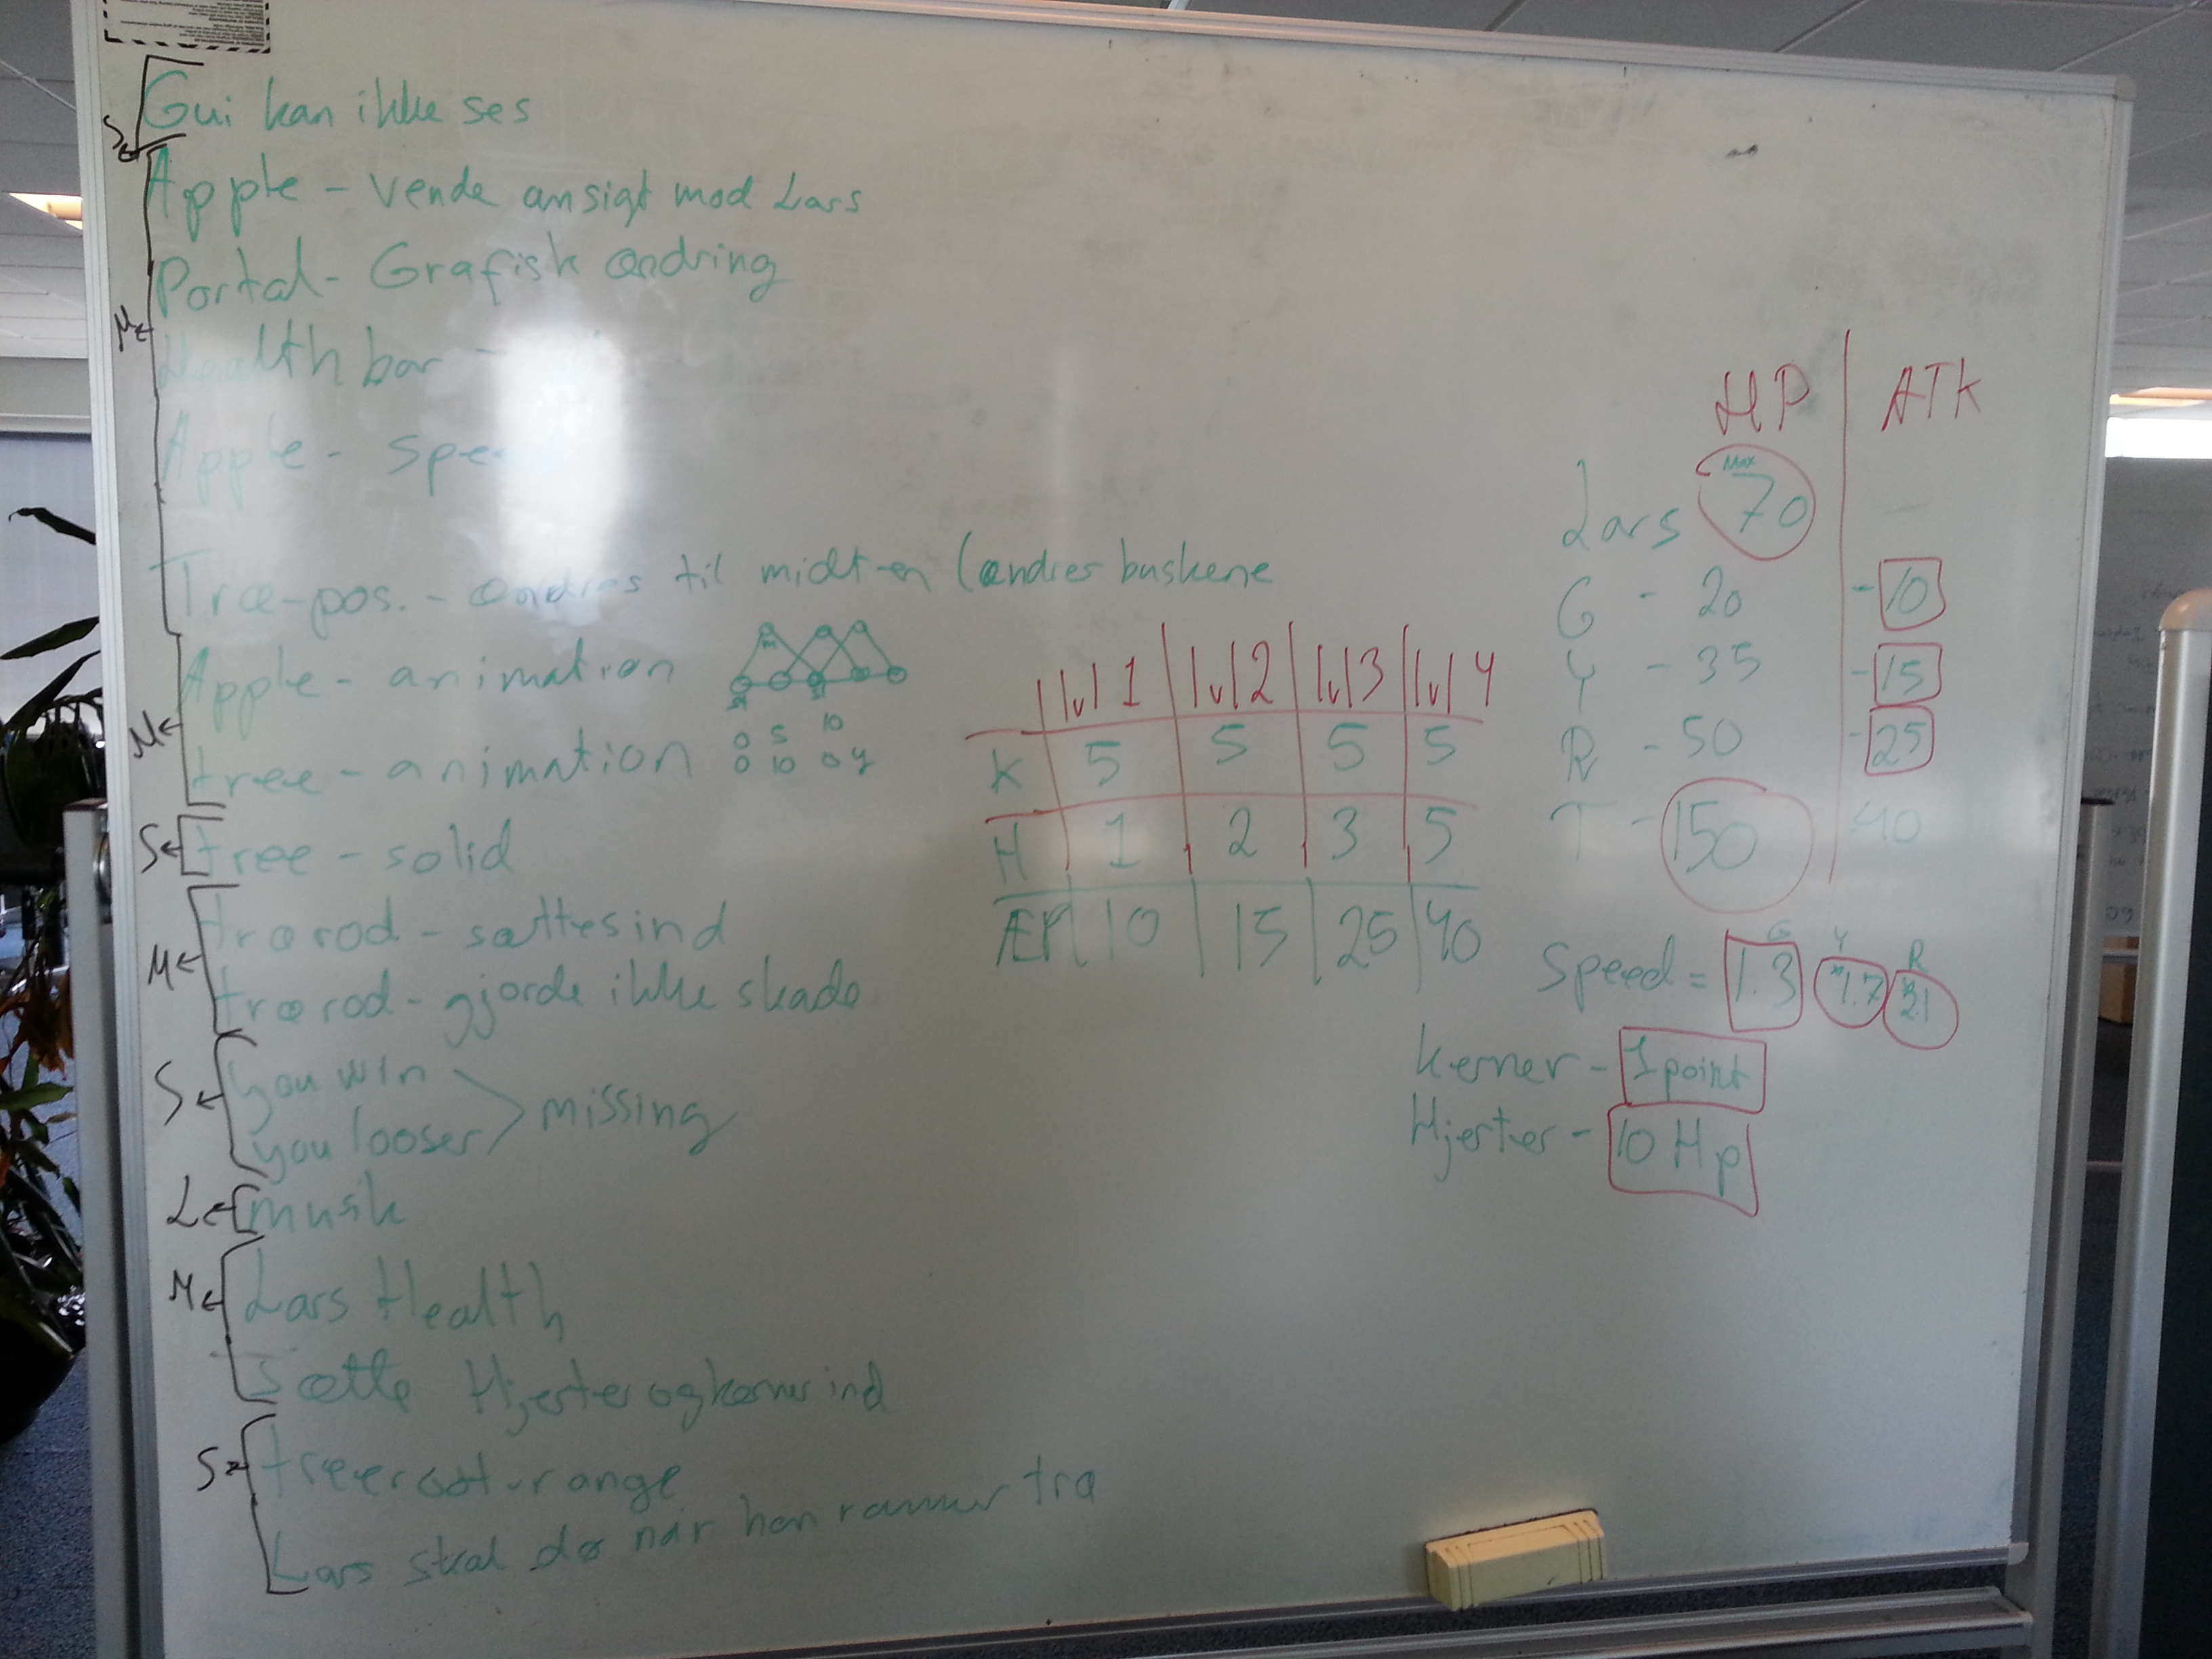 Gui kan ikke ses
S
Apple - vende ansigt mod Lars
Portal - Grafisk ændring
M
Health bar -
Apple - spe
Træ-pos. - ændres til midten (ændrer buskene
Apple - animation
M
tree - animation
0 5 10
0 10 0 y
S
tree - solid
træ rod - sættes ind
M
træ rod - gjorde ikke skade
S
you win
you looser
missing
L
musik
M
Lars Health
sætte Hjerter og kerner ind
S
treeroot-range
Lars skal dø når han rammer træ
lvl 1 lvl 2 lvl 3 lvl 4
K 5 5 5 5
H 1 2 3 5
10 15 25 40
HP ATK
Lars Max 70
G - 20 - 10
Y - 35 - 15
R - 50 - 25
T - 150 40
G Y R
Speed = 1.3 1.7 2.1
kerner - 1 point
Hjerter - 10 Hp